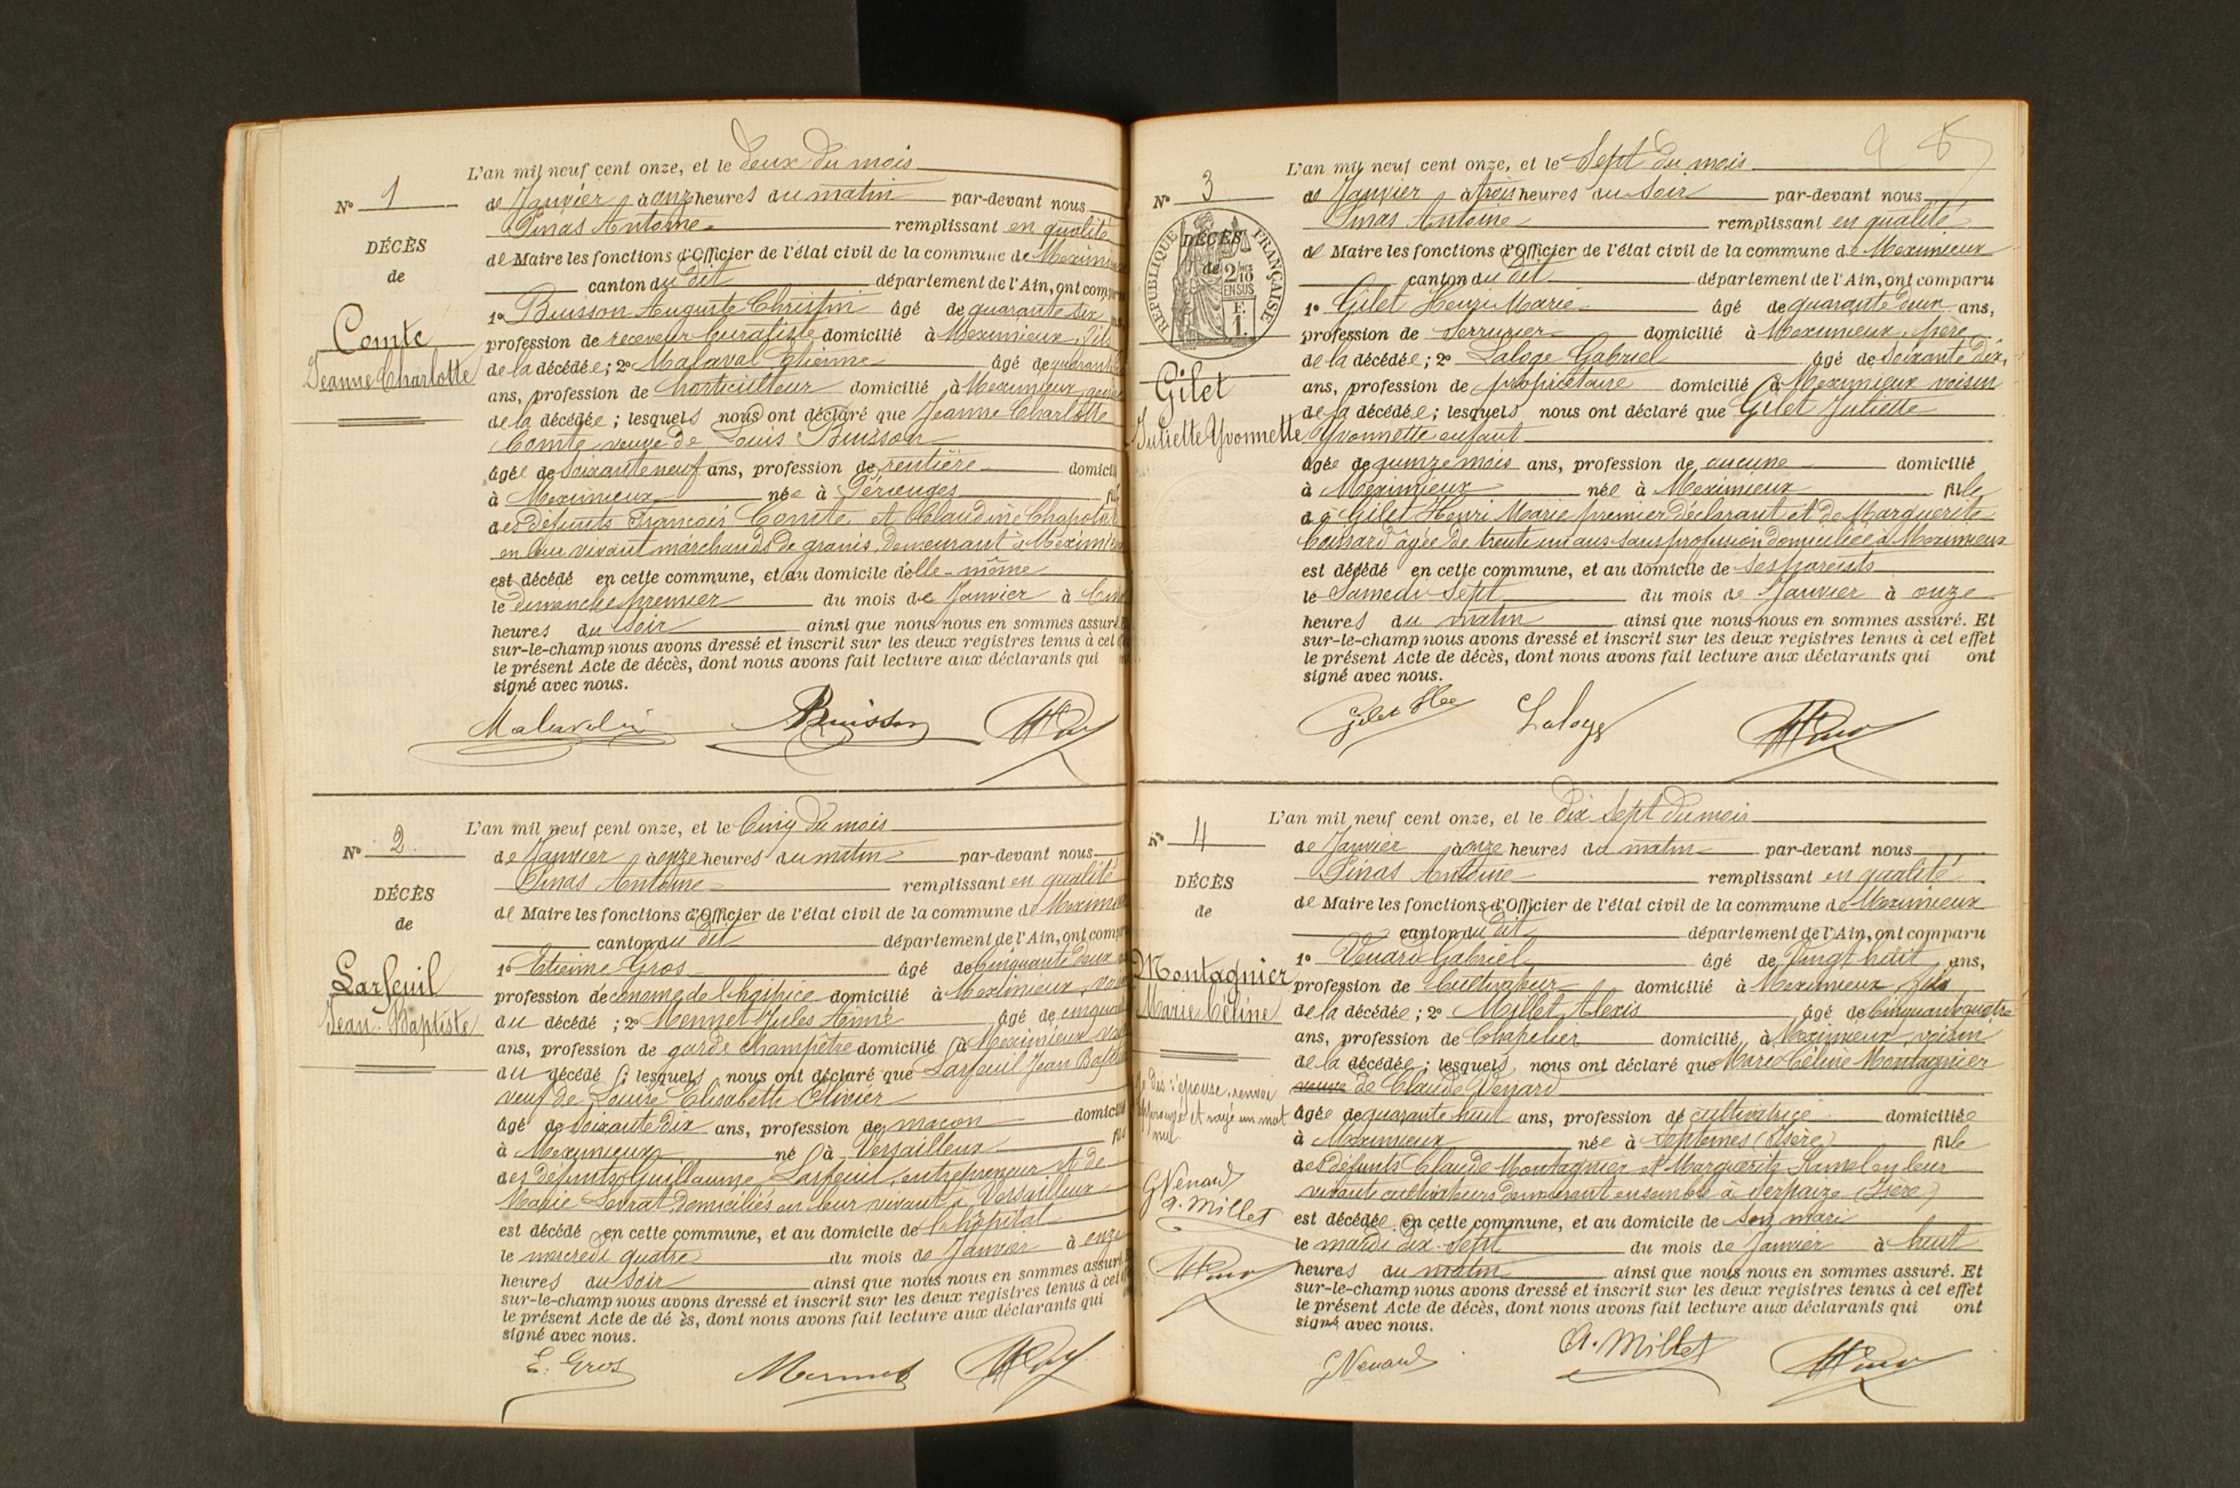 L'an mil neuf cent onze, et le deux du mois
N° 1
de Janvier à onze heures du matin par-devant nous
Pinas Antoine remplissant en qualité
DÉCÈS
de Maire les fonctions d'Officier de l'état civil de la commune de
de
canton du dit département de l'Ain, ont
1° Buisson Auguste âgé de quarante six
Comte
profession de receveur buraliste domicilié à Meximieux, fils
Jeanne Charlotte
de la décédée; 2° Malaval Etienne âgé de
ans, profession de horticulteur domicilié à Meximieux
de la décédée; lesquels nous ont déclaré que Jeanne Charlotte
Comte veuve de Louis Buisson
âgée de soixante neuf ans, profession de rentière
à Meximieux née à Pérouges
des défunts François Comte et Claudine
en leur vivant marchands de grains, demeurant à
est décédé en cette commune, et au domicile d'elle-même
le dimanche premier du mois de Janvier à
heures du soir ainsi que nous nous en sommes
sur-le-champ nous avons dressé et inscrit sur les deux registres tenus à cet
le présent Acte de décès, dont nous avons fait lecture aux déclarants qui
signé avec nous.
Buisson
L'an mil neuf cent onze, et le Cinq du mois
N° 2
de Janvier à onze heures du matin par-devant nous
Pinas Antoine remplissant en qualité
DÉCÈS
de Maire les fonctions d'Officier de l'état civil de la commune de
de
canton du dit département de l'Ain, ont
1° Etienne Gros âgé de Cinquante deux
Larfeuil
profession d'econome de l'hospice domicilié à Meximieux,
Jean Baptiste
du décédé; 2° Mermet Jules Aimé âgé de
ans, profession de garde champêtre domicilié à Meximieux
du décédé; lesquels nous ont déclaré que Larfeuil Jean
veuf de Louise Elisabeth Olivier
âgé de soixante dix ans, profession de maçon
à Meximieux né à Versailleux
des défunts Guillaume Larfeuil, entrepreneur et de
Marie domiciliés en leur vivant à Versailleux
est décédé en cette commune, et au domicile de l'hôpital
le mercredi quatre du mois de Janvier à onze
heures du soir ainsi que nous nous en sommes
sur-le-champ nous avons dressé et inscrit sur les deux registres tenus à cet
le présent Acte de dé ès, dont nous avons fait lecture aux déclarants qui
signé avec nous.
E. Gros Mermet
L'an mil neuf cent onze, et le Sept du mois
N° 3
de Janvier à trois heures du Soir par-devant nous
Pinas Antoine remplissant en qualité
RÉPUBLIQUE FRANÇAISE
DÉCÈS
de
2/10 EN SUS
F. 1.
de Maire les fonctions d'Officier de l'état civil de la commune de Meximieux
canton du dit département de l'Ain, ont comparu
1° Gilet Henri Marie âgé de quarante deux ans,
profession de serrurier domicilié à Meximieux, père
de la décédée; 2° Laloge Gabriel âgé de soixante dix,
Gilet
ans, profession de propriétaire domicilié à Meximieux voisin
de la décédée; lesquels nous ont déclaré que Gilet Juliette
Juliette Yvonnette
Yvonnette enfant
âgée de quinze mois ans, profession de aucune domicilié
à Meximieux née à Meximieux fille
de Gilet Henri Marie premier déclarant et de Marguerite
âgée de trente un ans sans profession domiciliée à Meximieux
est décédé en cette commune, et au domicile de ses parents
le Samedi sept du mois de Janvier à onze
heures du matin ainsi que nous nous en sommes assuré. Et
sur-le-champ nous avons dressé et inscrit sur les deux registres tenus à cet effet
le présent Acte de décès, dont nous avons fait lecture aux déclarants qui ont
signé avec nous.
Gilet Laloge
L'an mil neuf cent onze, et le dix sept du mois
N° 4
de Janvier à onze heures du matin par-devant nous
Pinas Antoine remplissant en qualité
DÉCÈS
de Maire les fonctions d'Officier de l'état civil de la commune de Meximieux
de
canton du dit département de l'Ain, ont comparu
1° Venard Gabriel âgé de Vingt huit ans,
Montagnier
profession de Cultivateur domicilié à Meximieux fils
Marie Céline
de la décédée; 2° Millet Alexis âgé de Cinquante quatre
ans, profession de Chapelier domicilié à Meximieux voisin
de la décédée; lesquels nous ont déclaré que Marie Céline Montagnier
veuve de Claude Venard
Je dis: épouse, renvoi
approuvé et rayé un mot
nul
âgée de quarante huit ans, profession de cultivatrice domiciliée
à Meximieux née à Septèmes (Isère) fille
des défunts Claude Montagnier et Marguerite en leur
vivant cultivateurs demeurant ensemble à Serpaize (Isère)
GVenard
A. Millet
est décédée en cette commune, et au domicile de son mari
le mardi dix-sept du mois de Janvier à huit
heures du matin ainsi que nous nous en sommes assuré. Et
sur-le-champ nous avons dressé et inscrit sur les deux registres tenus à cet effet
le présent Acte de décès, dont nous avons fait lecture aux déclarants qui ont
signé avec nous.
GVenard A. Millet